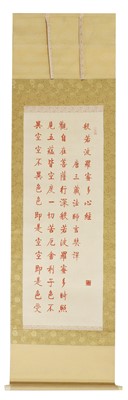 般若波羅蜜多心經
唐三藏法師玄奘譯
觀自在菩薩行深般若波羅蜜多時照
見五蘊皆空度一切苦厄舍利子色不
異空空不異色色即是空空即是色受